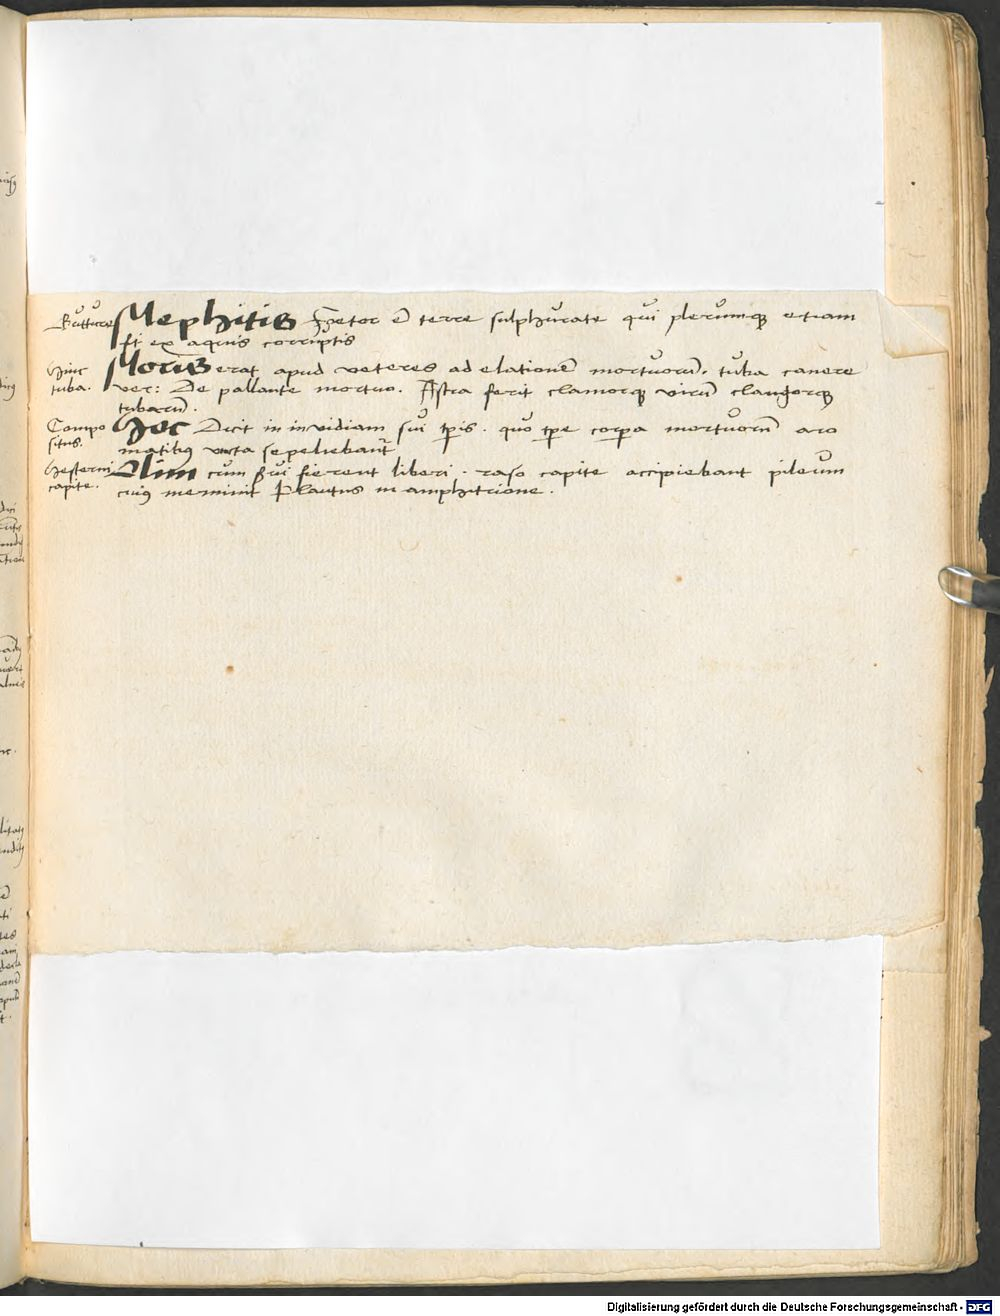 Gutture Mephitis Foetor ē terre sulphurate qui plerumqꝫ etiam
fit ex aquis corruptis
Hinc Moris erat apud veteres ad elationē mortuorū. tuba canere
tuba. ver: De pallante mortuo. Astra ferit clamorqꝫ virū clangorqꝫ
tubarū.
Compo Hoc Dicit in invidiam sui tp̄is. quo tp̄e corpa mortuorū aro
situs. matibꝫ uncta sepeliebant̄
Hesterni Olim cum servi fierent liberi. raso capite accipiebant pileum
capite. cuiꝫ meminit Plautus in amphitrione.
Digitalisierung gefördert durch die Deutsche Forschungsgemeinschaft - DFG